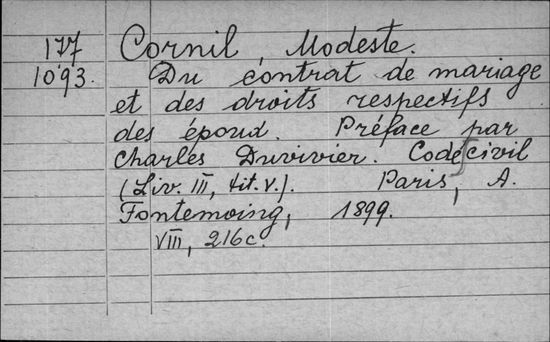 177 Cornil, Modeste.
1093. Du contrat de mariage
et des droits respectifs
des époud. Préface par
Charles Duvivier. Code civil
(Liv. III, tit. V.). Paris, A.
Fontemoing, 1899.
VIII, 216c.